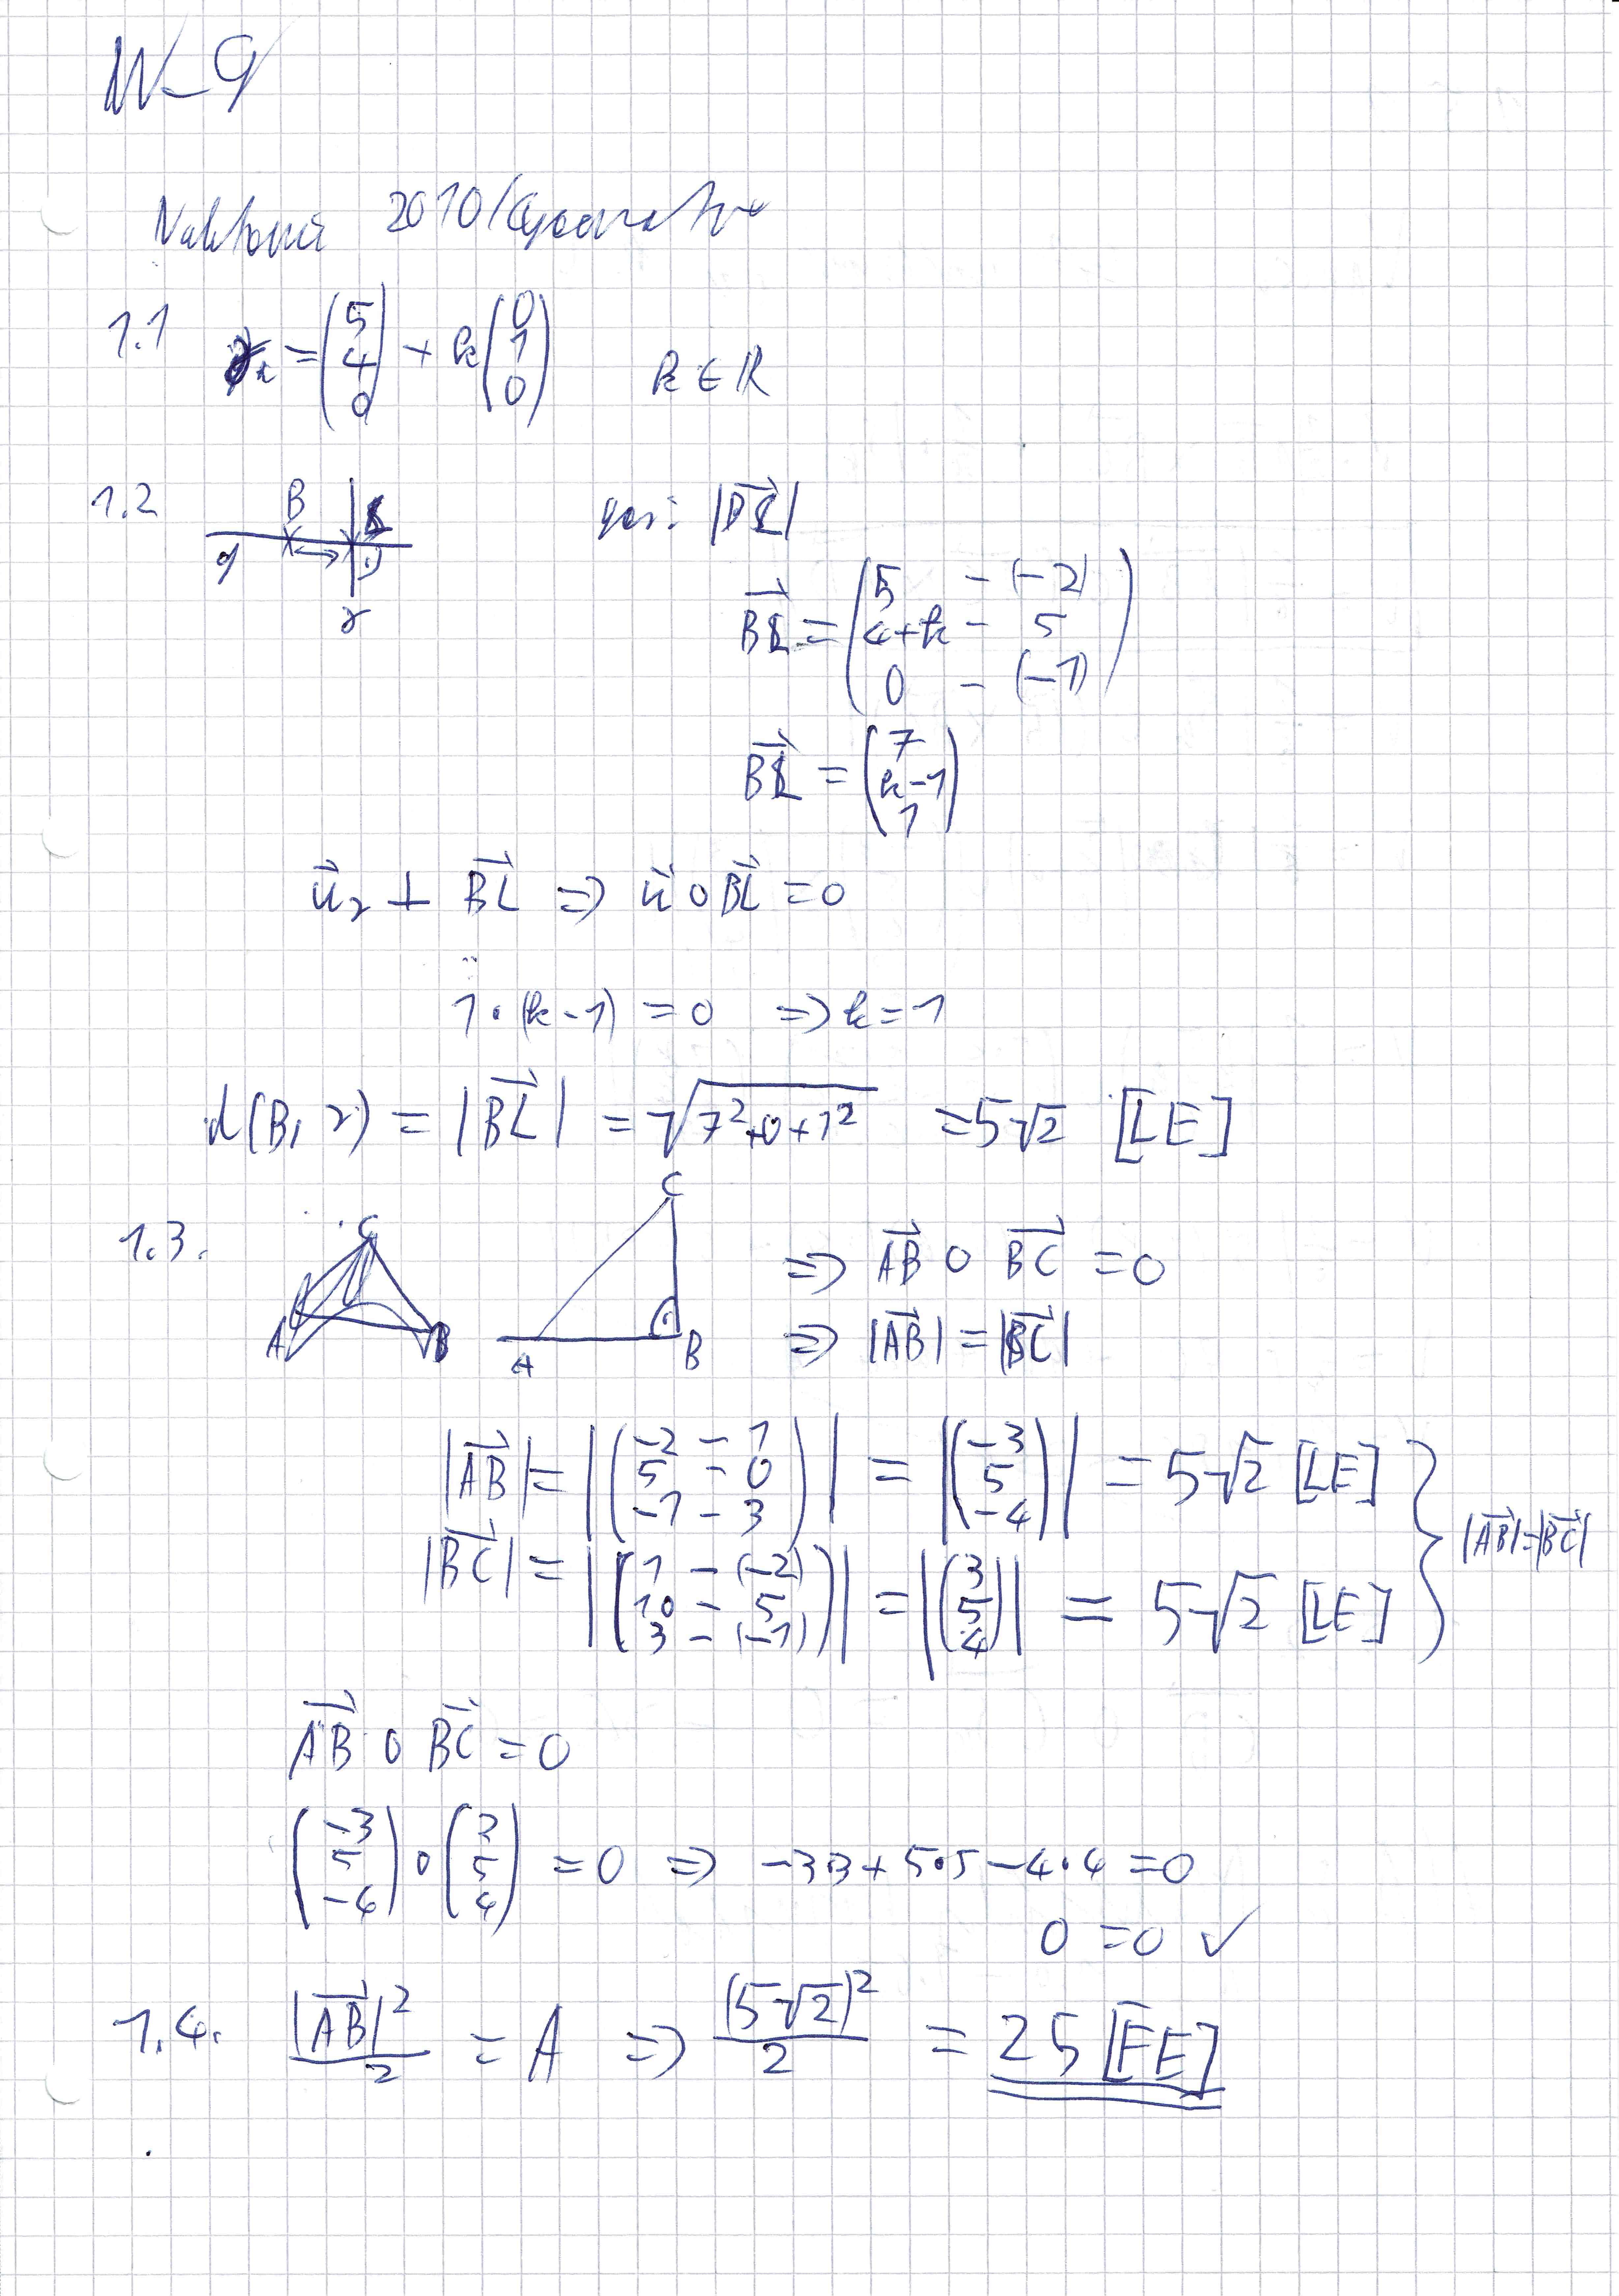 1.1 = (5 4 0) + k (0 1 0) k ∈ ℝ
1.2 B L
g r
ges: |BL|
BL = (5 - (-2) 4+k - 5 0 - (-1))
BL = (7 k-1 1)
u_r ⊥ BL ⇒ u ∘ BL = 0
1 · (k - 1) = 0 ⇒ k = 1
d(B, r) = |BL| = √(7² + 0 + 1²) = 5√2 [LE]
1.3. C C ⇒ AB ∘ BC = 0
A B A B ⇒ |AB| = |BC|
|AB| = |(-2 - 1 5 - 0 -1 - 3)| = |(-3 5 -4)| = 5√2 [LE]
|BC| = |(1 - (-2) 10 - 5 3 - (-1))| = |(3 5 4)| = 5√2 [LE]
|AB| = |BC|
AB ∘ BC = 0
(-3 5 -4) ∘ (3 5 4) = 0 ⇒ -3·3 + 5·5 - 4·4 = 0
0 = 0 ✓
1.4. |AB|²/2 = A ⇒ (5√2)²/2 = 25 [FE]